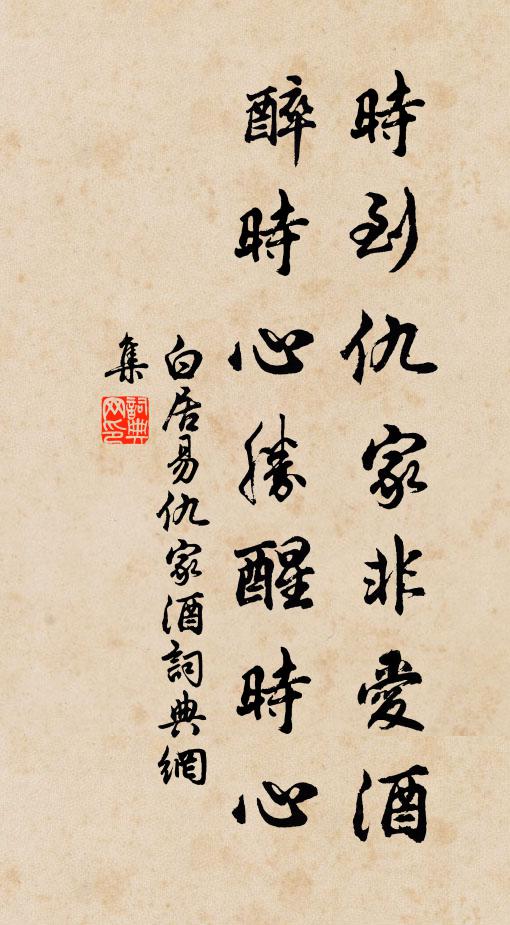 時到仇家非愛酒
醉時心勝醒時心
白居易仇家酒詞典網
集
詞典
网印